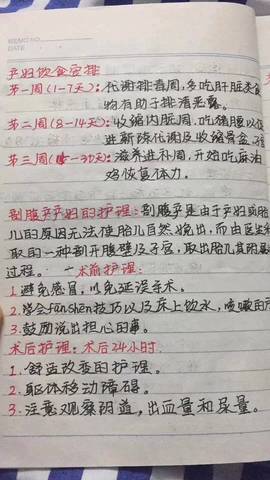 MEMO NO.
DATE
产妇饮食安排
第一周(1-7天):代谢排毒周,多吃肝脏类食
物有助于排清恶露。
第二周(8-14天):收缩内脏周,吃猪腰以促
进新陈代谢及收缩骨盆子宫
第三周(15-30天):滋养进补周,开始吃麻油
鸡恢复体力。
剖腹产产妇的护理:剖腹产是由于产妇或胎
儿的原因无法使胎儿自然娩出,而由医生采
取的一种剖开腹壁及子宫,取出胎儿其
过程。一术前护理:
1.避免感冒,以免延误手术。
2.学会fanshen技巧以及床上饮水,咳嗽的
3.鼓励说出担心的事。
术后护理:术后24小时
1.舒适改变的护理。
2.躯体移动障碍。
3.注意观察阴道,出血量和尿量。